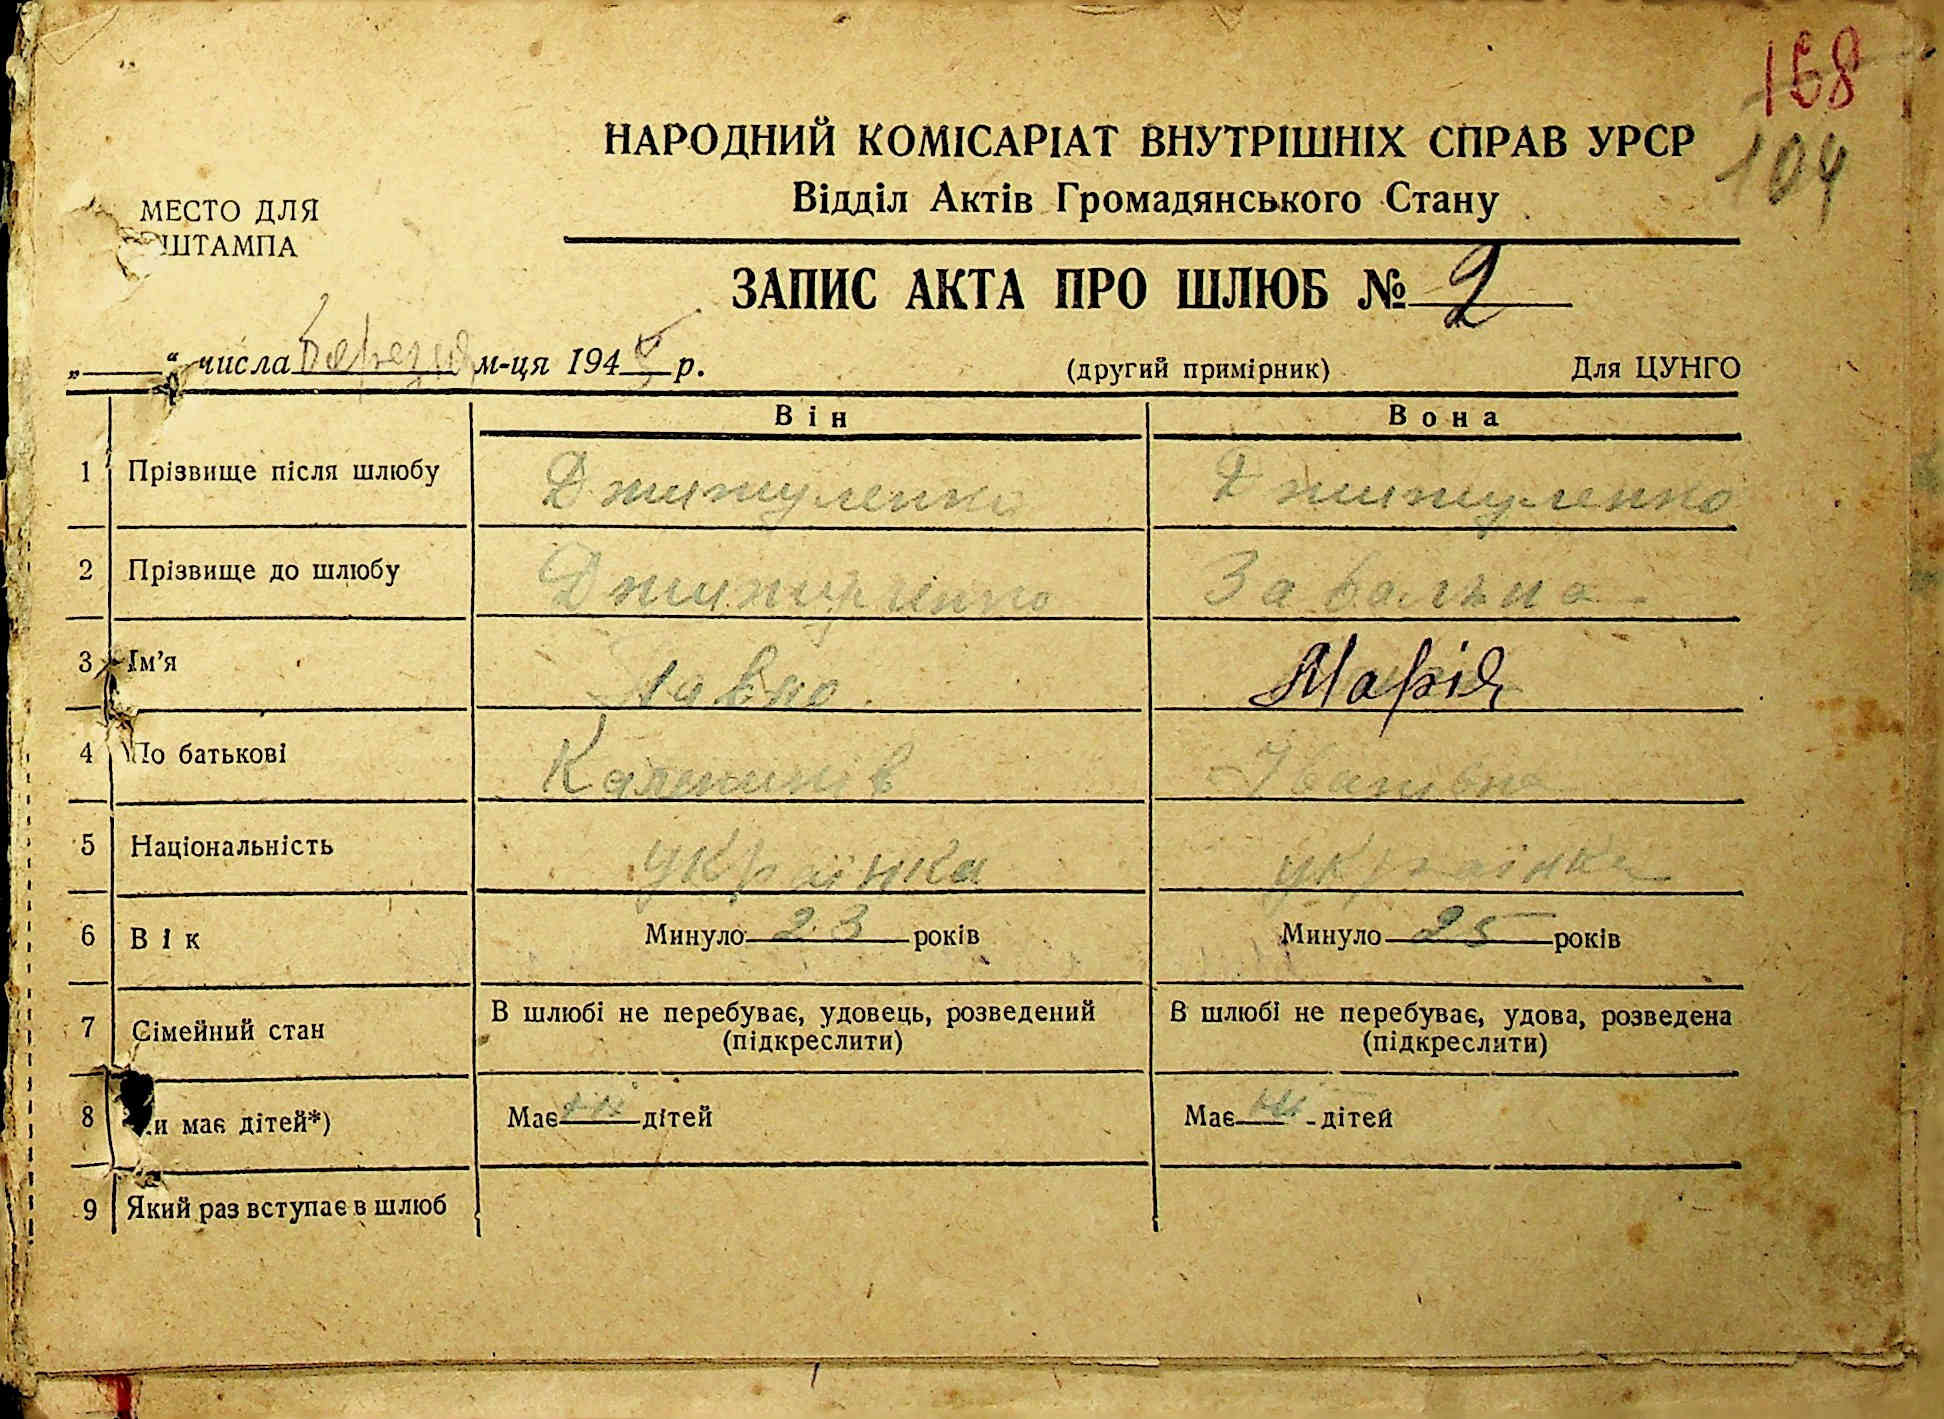 168
104
НАРОДНИЙ КОМІСАРІАТ ВНУТРІШНІХ СПРАВ УРСР
Відділ Актів Громадянського Стану
МЕСТО ДЛЯ
ШТАМПА
ЗАПИС АКТА ПРО ШЛЮБ № 2
„ “ числа березня м-ця 194 р.
(другий примірник) Для ЦУНГО
Він Вона
1 Прізвище після шлюбу Джижуленко Джижуленко
2 Прізвище до шлюбу Джижуленко Завальна
3 Ім’я Павло Марія
4 По батькові Іванівна
5 Національність українка українка
6 Вік Минуло 23 років Минуло 25 років
7 Сімейний стан В шлюбі не перебуває, удовець, розведений (підкреслити) В шлюбі не перебуває, удова, розведена (підкреслити)
8 має дітей*) Має ні дітей Має ні дітей
9 Який раз вступає в шлюб